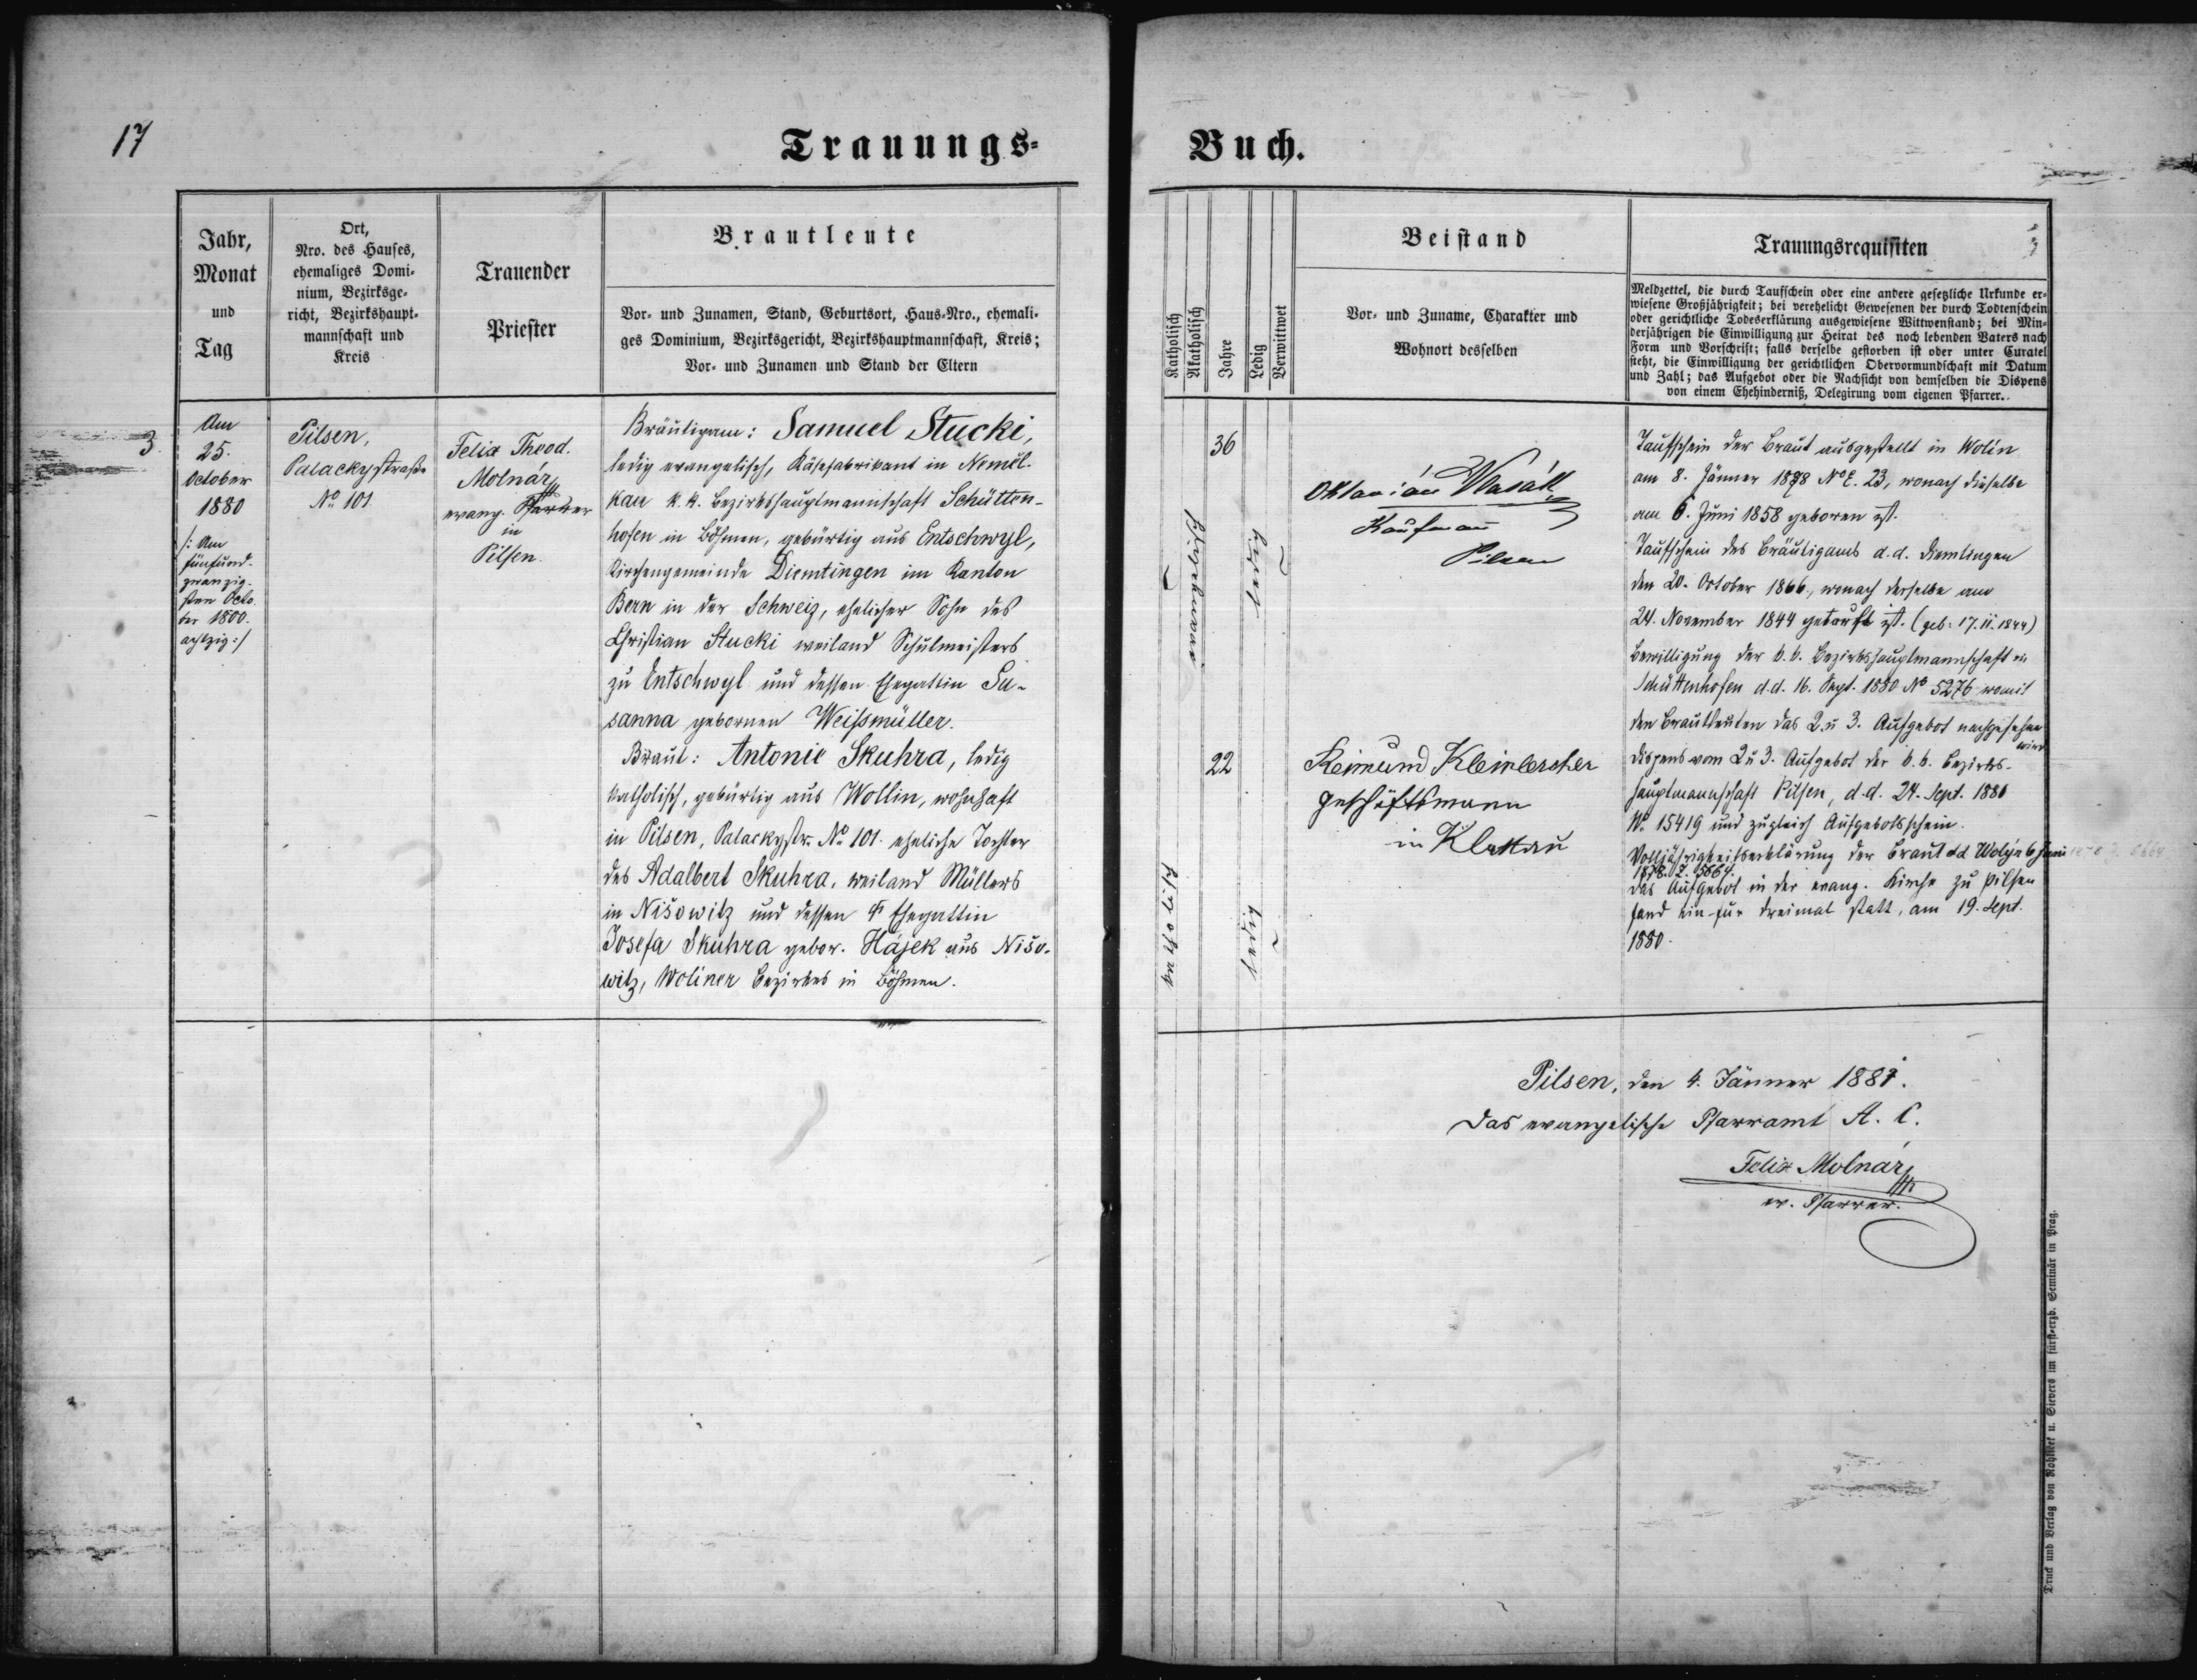 17
Trauungs-
Buch.
Jahr,
Monat
und
Tag
Ort,
Nro. des Hauses,
ehemaliges Domi-
nium, Bezirksge-
richt, Bezirkshaupt-
mannschaft und
Kreis
Trauender
Priester
Brautleute
Vor- und Zunamen, Stand, Geburtsort, Haus-Nro., ehemali-
ges Dominium, Bezirksgericht, Bezirkshauptmannschaft, Kreis;
Vor- und Zunamen und Stand der Eltern
3.
Am
25.
October
1880
/: Am
fünfund-
zwanzig-
sten Octo
ber 1800.
achtzig :/
Pilsen,
Palackystraße
No 101
Felix Theod.
Molnár
evang. Pfarrer
in
Pilsen.
Bräutigam: Samuel Stucki,
ledig evangelisch, Käsefabrikant in Neměl-
kau k. k. Bezirkshauptmannschaft Schütten-
hofen in Böhmen, gebürtig aus Entschwyl,
Kirchengemeinde Diemtingen im Kanton
Bern in der Schweiz, ehelicher Sohn des
Christian Stucki weiland Schulmeisters
zu Entschwyl und dessen Ehegattin Su-
sanna gebornen Weissmüller.
Braut: Antonie Skuhra, ledig
katholisch, gebürtig aus Wollin, wohnhaft
in Pilsen, Palackystr. No 101. eheliche Tochter
des Adalbert Skuhra, weiland Müllers
in Nišowitz und dessen Ehegattin
Josefa Skuhra gebor. Hájek aus Nišo-
witz, Woliner Bezirkes in Böhmen.
Katholisch
Akatholisch
Jahre
Ledig
Verwittwet
Beistand
Vor- und Zuname, Charakter und
Wohnort desselben
Trauungsrequisiten
Meldzettel, die durch Taufschein oder eine andere gesetzliche Urkunde er-
wiesene Großjährigkeit; bei verehelicht Gewesenen der durch Todtenschein
oder gerichtliche Todeserklärung ausgewiesene Wittwenstand; bei Min-
derjährigen die Einwilligung zur Heirat des noch lebenden Vaters nach
Form und Vorschrift; falls derselbe gestorben ist oder unter Curatel
steht, die Einwilligung der gerichtlichen Obervormundschaft mit Datum
und Zahl; das Aufgebot oder die Nachsicht von demselben die Dispens
von einem Ehehinderniß, Delegirung vom eigenen Pfarrer.
evangelisch
36
ledig
Oktavián
Kaufmann
Pilsen
katholisch
22
ledig
Reimund Kleinlercher
Geschäftsmann
in Klattau
Taufschein der Braut ausgestellt in Wolin
am 8. Jänner 1878 No E. 23, wonach dieselbe
am 6. Juni 1858 geboren ist.
Taufschein des Bräutigams d. d. Diemtingen
den 20. October 1866, wonach derselbe am
24. November 1844 getauft ist. (geb: 17. 11. 1844)
Bewilligung der k. k. Bezirkshauptmannschaft in
Schüttenhofen d. d. 16. Sept. 1880 No 5276 womit
den Brautleuten das 2. u 3. Aufgebot nachgesehen
wird
Dispens vom 2 u 3. Aufgebot der k. k. Bezirks-
hauptmannschaft Pilsen, d. d. 24. Sept. 1880
No 15419 und zugleich Aufgebotsschein.
Volljährigkeitserklärung der Braut dd Wolyně 6 Juni
1878. Z. 5564.
Das Aufgebot in der evang. Kirche zu Pilsen
fand ein- für dreimal statt, am 19. Sept.
1880.
Pilsen, den 4. Jänner 1881.
Das evangelische Pfarramt A. C.
Felix Molnár
ev. Pfarrer.
Druck und Verlag von Rohliček u. Sievers im fürst-erzb. Seminär in Prag.